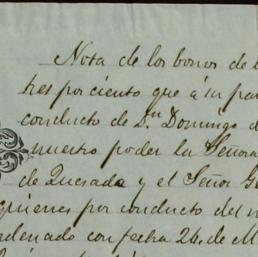 Nota de los bonos de l
tres por ciento que á su pa
conducto de Dn Domingo d
nuestro poder la Señora
de Quesada y el Señor G
quienes por conducto del m
ordenado con fecha 26 de M